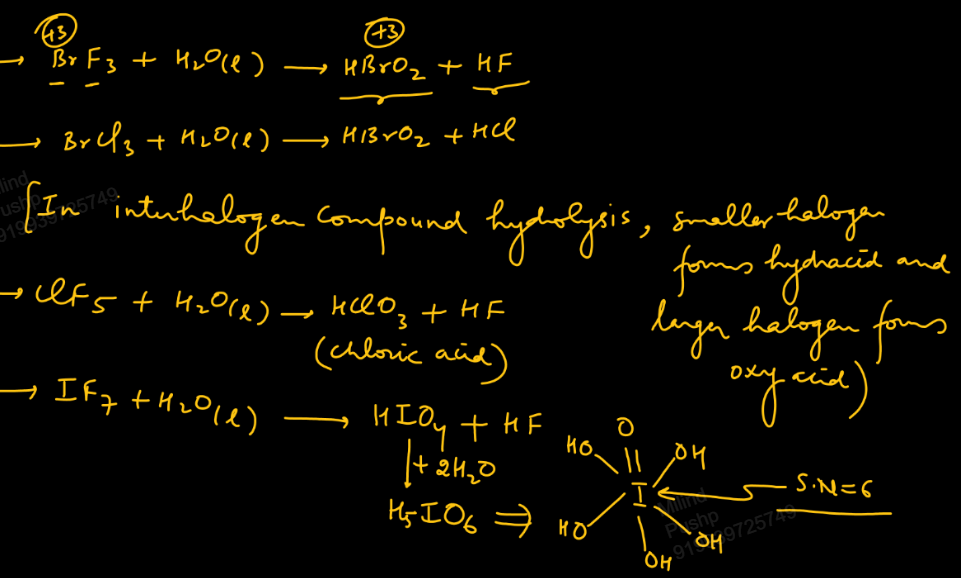 +3 +3
→ BrF₃ + H₂O(l) ⟶ HBrO₂ + HF
→ BrCl₃ + H₂O(l) ⟶ HBrO₂ + HCl
[In interhalogen compound hydrolysis, smaller halogen
forms hydracid and
larger halogen forms
oxy acid)
→ ClF₅ + H₂O(l) ⟶ HClO₃ + HF
(chloric acid)
→ IF₇ + H₂O(l) ⟶ HIO₄ + HF
+ 2H₂O
H₅IO₆ ⇒
O
HO OH
I S.N=6
HO OH
OH
Milind
Pushp